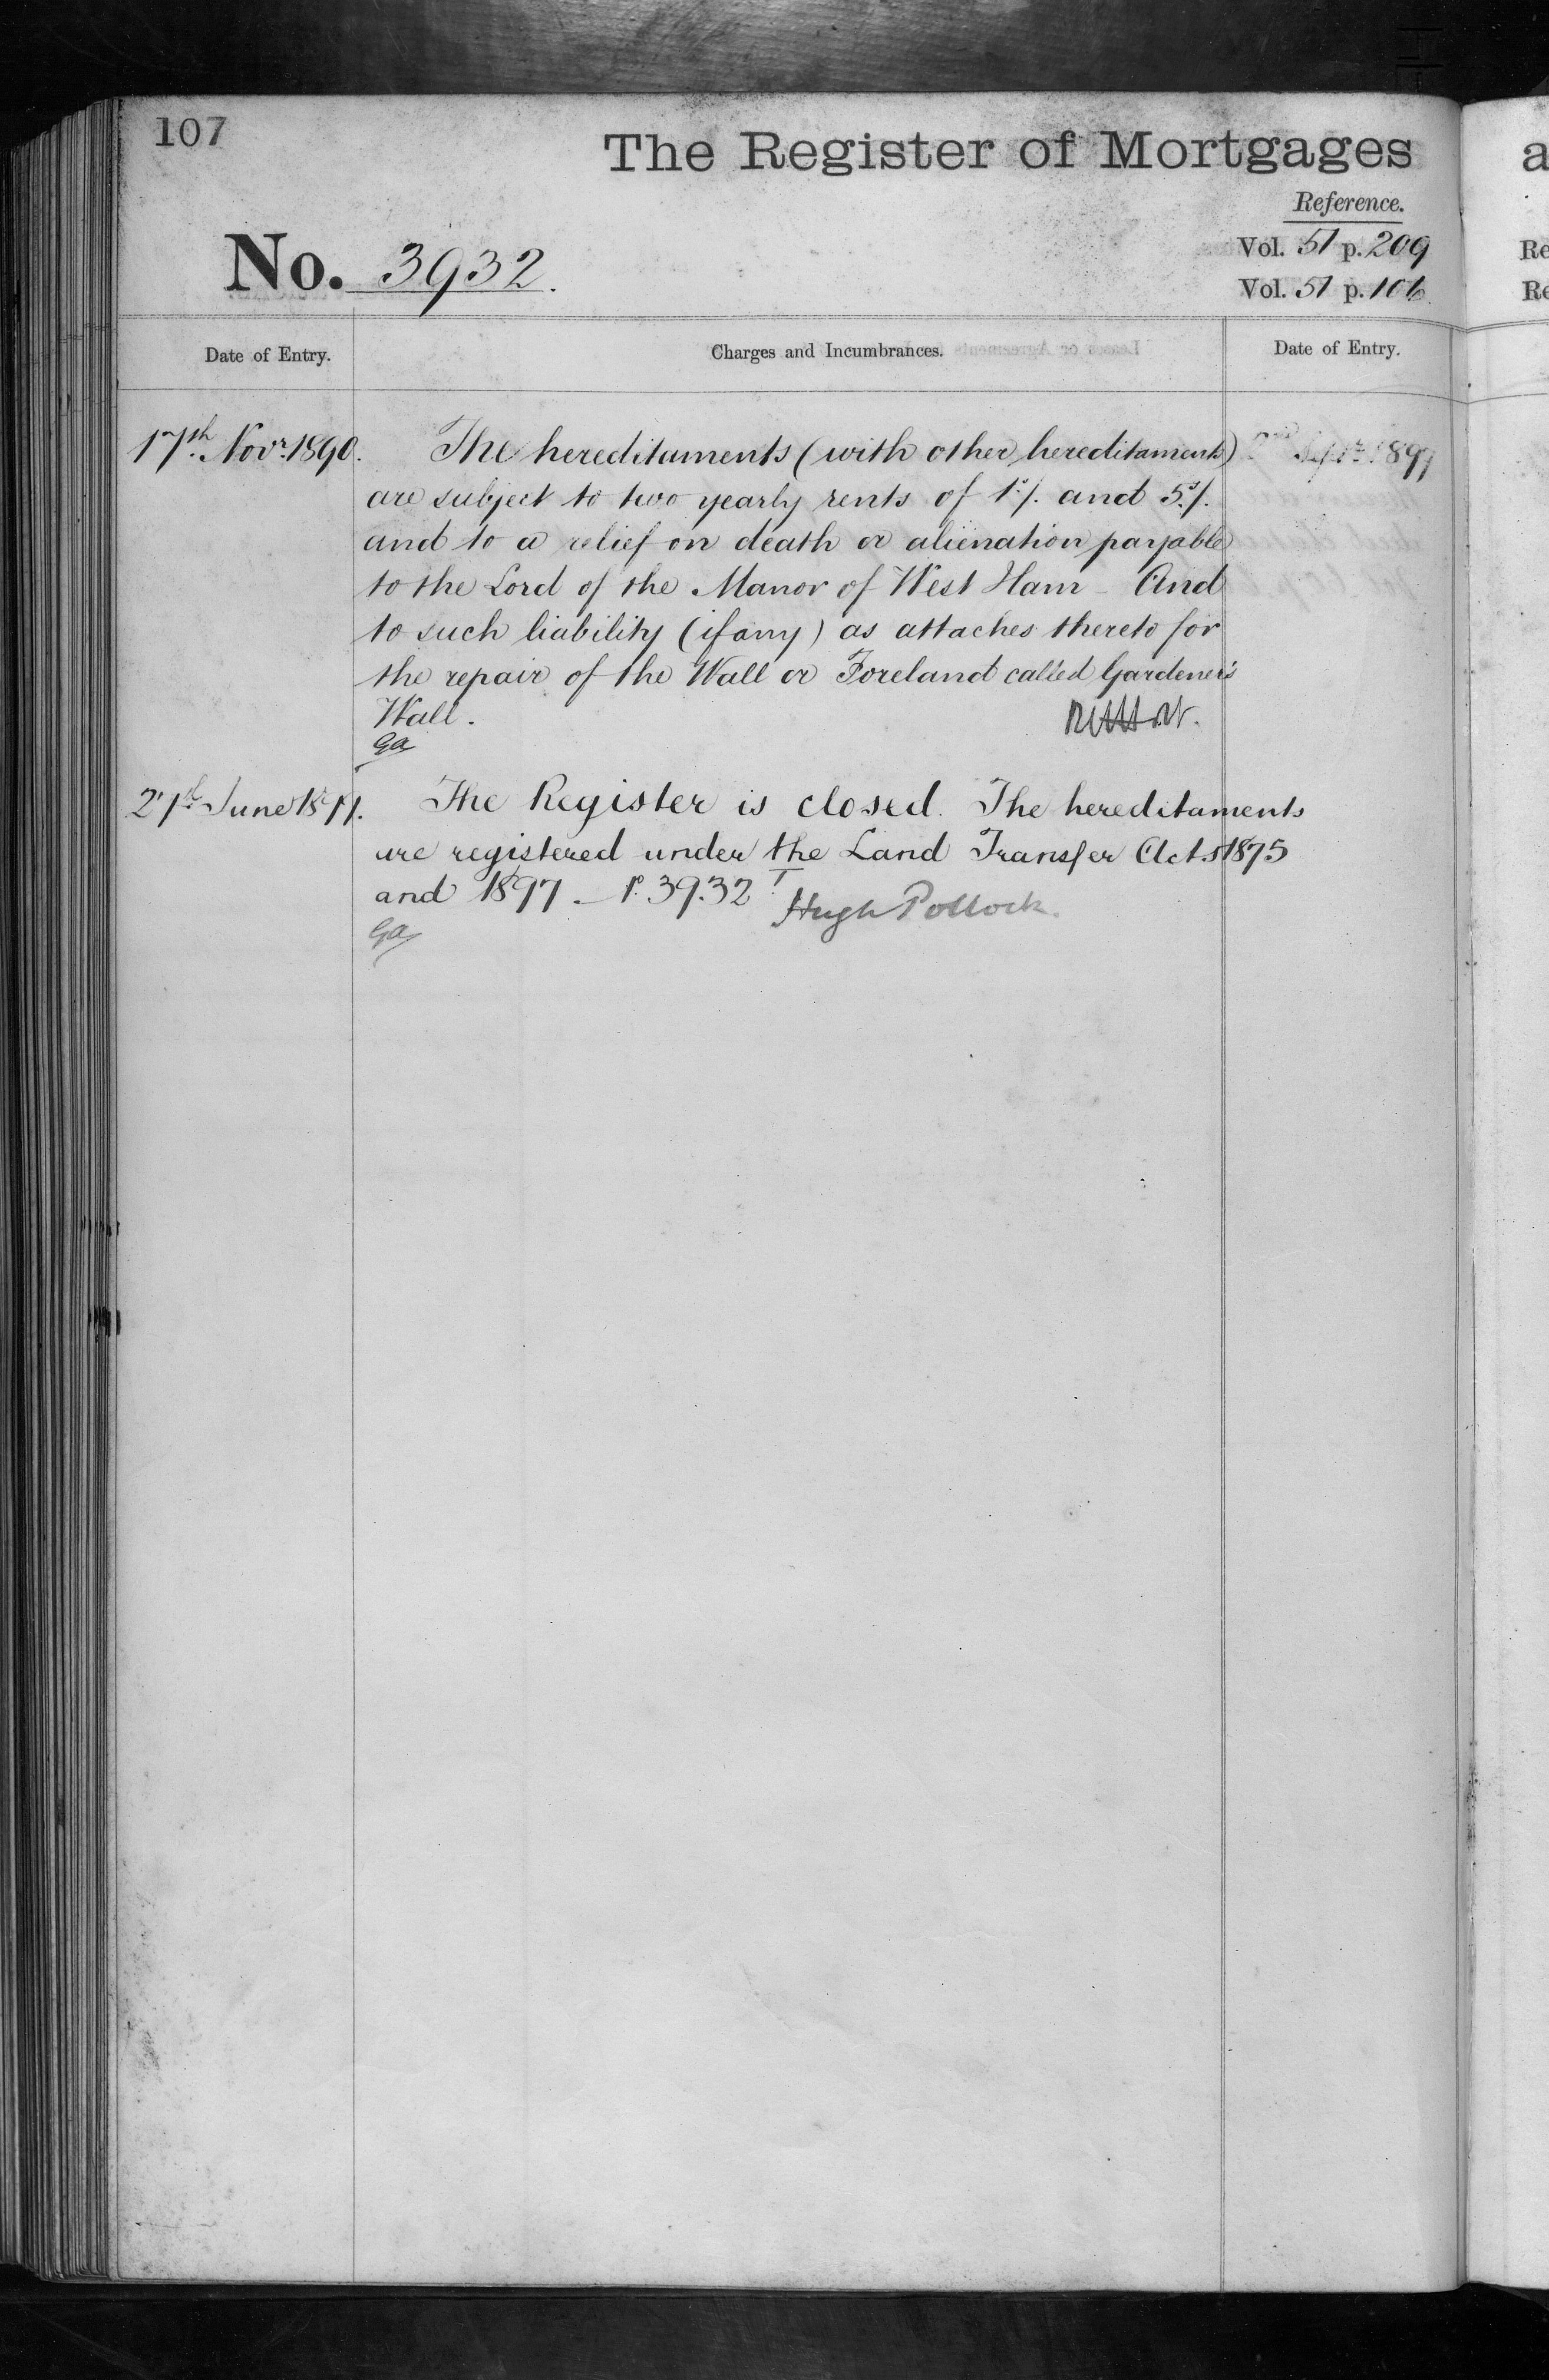 107
The Register of Mortgages
Reference.
No. 3932.
Vol. 51 p. 209
Vol. 51 p. 106
Date of Entry.
Charges and Incumbrances.
Date of Entry.
17th Novr. 1890.
The hereditaments (with other hereditaments)
are subject to two yearly rents of 1s/. and 5s/.
and to a relief on death or alienation payable
to the Lord of the Manor of West Ham - And
to such liability (if any) as attaches thereto for
the repair of the Wall or Foreland called Gardener's
Wall.
Ga
June
The Register is closed. The hereditaments
are registered under the Land Transfer Acts 1875
and 1897 - P. 3932
Hugh Pollock.
Ga
a
Re
Re